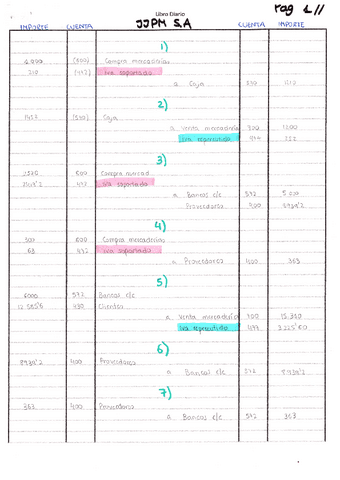 pag 1 //
Libro Diario
JJPM S.A
IMPORTE CUENTA CUENTA IMPORTE
1)
1.000 (600) Compra mercaderías
210 (472) iva soportado
a Caja 570 1210
2)
1452 (570) Caja
a Venta mercadería 700 1200
iva repercutido 477 252
3)
600 Compra mercad
472 iva soportado
a Bancos c/c 572
Proveedores 400 8939'2
4)
300 600 Compra mercaderías
63 472 iva soportado
a Proveedores 400 363
5)
6000 572 Bancos c/c
430 Clientes
a Venta mercadería 700
iva repercutido 477
6)
8939'2 400 Proveedores
a Bancos c/c 572 8939'2
7)
363 400 Proveedores
a Bancos c/c 572 363